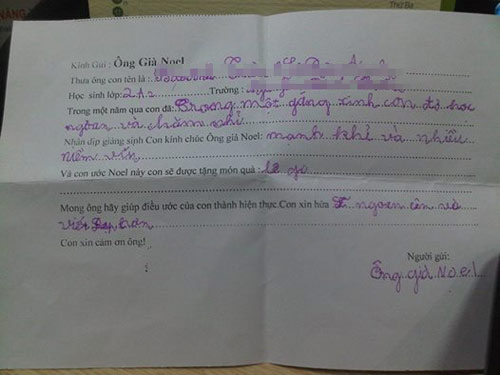 NĂNG
Thứ Ba
Kính Gửi : Ông Già Noel
Thưa ông con tên là :
Học sinh lớp: 2A2 Trường :
Trong một năm qua con đã: Trong một
ngoan và chăm chỉ
Nhân dịp giáng sinh Con kính chúc Ông già Noel: manh khỉ và nhiều
niềm vui
Và con ước Noel này con sẽ được tặng món quà : lê go
Mong ông hãy giúp điều ước của con thành hiện thực.Con xin hứa ngoan và
viết đẹp hơn
Con xin cảm ơn ông!
Người gửi:
Ông già Noel